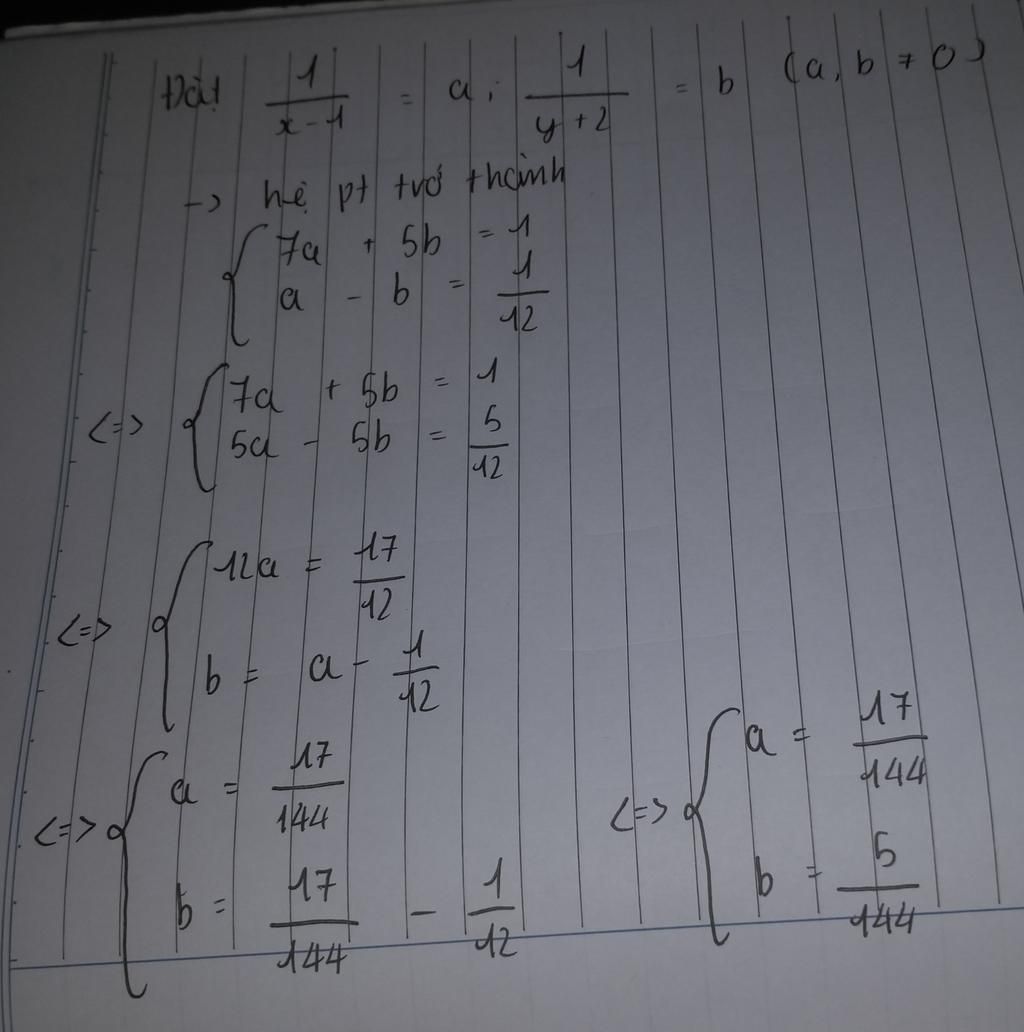 Đặt 1/(x-1) = a; 1/(y+2) = b (a, b ≠ 0)
-> hệ pt trở thành
{ 7a + 5b = 1
a - b = 1/12
<=> { 7a + 5b = 1
5a - 5b = 5/12
<=> { 12a = 17/12
b = a - 1/12
<=> { a = 17/144
b = 17/144 - 1/12
<=> { a = 17/144
b = 5/144